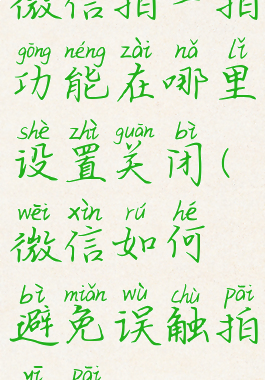 微信拍一拍
gōng néng zài nǎ lǐ
功能在哪里
shè zhì guān bì
设置关闭(
wēi xìn rú hé
微信如何
bì miǎn wù chù pāi
避免误触拍
yī pāi